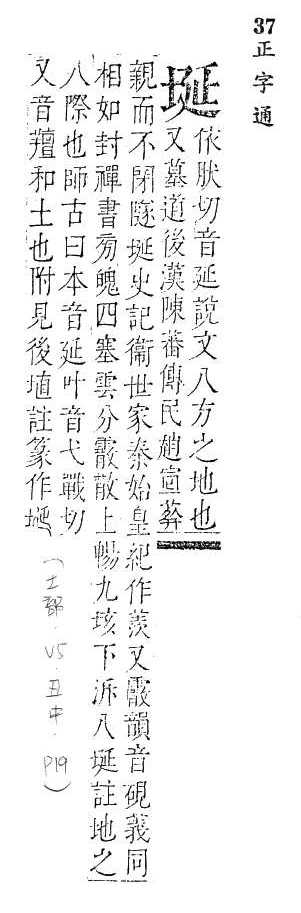 37正字通
埏
依肰切音延說文八方之地也
又墓道後漢陳蕃傳民趙宣葬
親而不閉隧埏史記衞世家秦始皇紀作羨又霰韻音硯義同
相如封禪書旁魄四塞雲分霰散上暢九垓下泝八埏註地之
八際也師古曰本音延叶音弋戰切
又音羶和土也附見後埴註篆作
(土部.V5.丑中.P19)